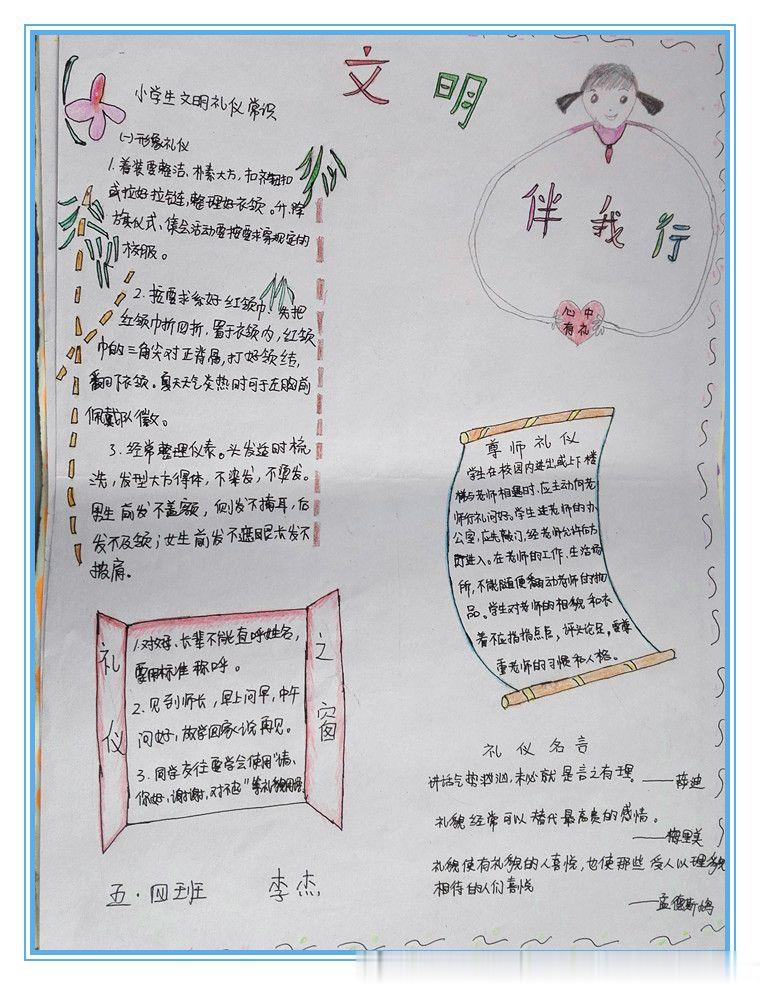 文明
伴我行
心中
有礼
小学生文明礼仪常识
(一)形象礼仪
1.着装要整洁、朴素大方,扣齐钮扣
或拉好拉链,整理好衣领。升、降
旗仪式、集会活动要按要求穿规定的
校服。
2.按要求系好红领巾。先把
红领巾折四折,置于衣领内,红领
巾的三角尖对正背居,打好领结,
翻下衣领。夏天天气炎热时可于左胸前
佩戴队徽。
3.经常整理仪表。头发适时梳
洗,发型大方得体,不染发,不烫发。
男生前发不盖额,侧发不掩耳,后
发不及领;女生前发不遮眼长发不
披肩。
礼仪
之窗
1.对教师、长辈不能直呼姓名,
要用标准称呼。
2.见到师长,早上问早,中午
问好,放学回家说再见。
3.同学友往要学会使用"请、
你好、谢谢、对不起"等礼貌用语
尊师礼仪
学生在校园内进出或上下楼
梯与老师相遇时,应主动向老
师行礼问好。学生进老师的办
公室,应先敲门,经老师允许后方
可进入。在老师的工作、生活场
所,不能随便翻动老师的物
品。学生对老师的相貌和衣
着不应指指点点,评头论足,要尊
重老师的习惯和人格。
礼仪名言
讲话气势汹汹,未必就是言之有理。——萨迪
礼貌经常可以替代最高贵的感情。
——梅里美
礼貌使有礼貌的人喜悦,也使那些受人以礼貌
相待的人们喜悦
——孟德斯鸠
五·四班 李杰